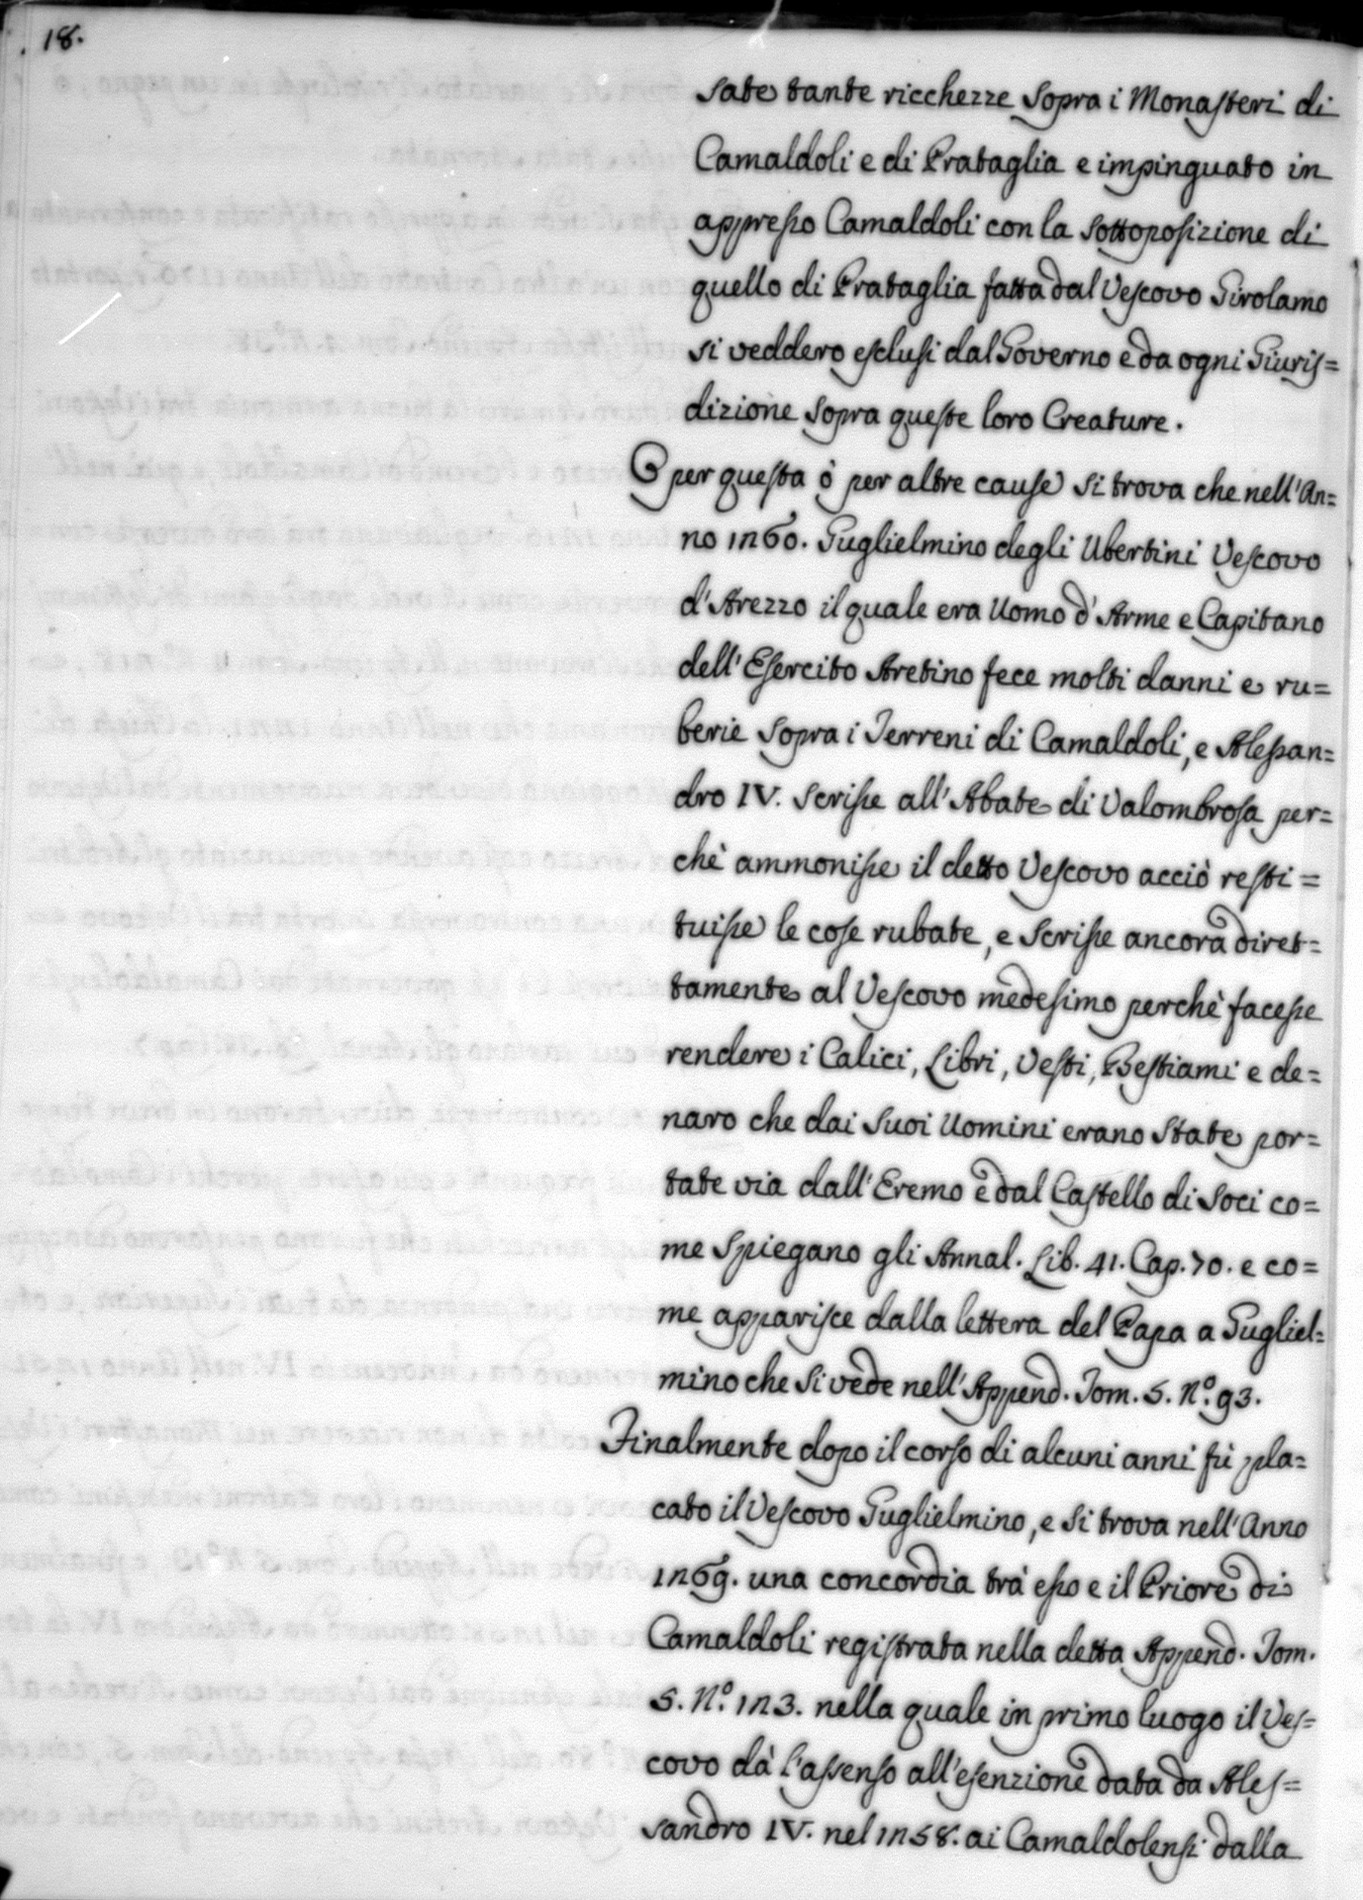 18.
sate tante ricchezze sopra i Monasteri di
Camaldoli e di Prataglia e impinguato in
appresso Camaldoli con la sottoposizione di
quello di Prataglia fatta dal Vescovo Girolamo
si veddero esclusi dal Governo e da ogni Giuris=
dizione sopra queste loro Creature.
O per questa ò per altre cause si trova che nell'An=
no 1260. Guglielmino degli Ubertini Vescovo
d'Arezzo il quale era Uomo d'Arme e Capitano
dell'Esercito Aretino fece molti danni e ru=
berie sopra i Terreni di Camaldoli, e Alessan=
dro IV. scrisse all'Abate di Valombrosa per=
chè ammonisse il detto Vescovo acciò resti=
tuisse le cose rubate, e scrisse ancora diret=
tamente al Vescovo medesimo perchè facesse
rendere i Calici, Libri, Vesti, Bestiami e de=
naro che dai suoi Uomini erano state por=
tate via dall'Eremo e dal Castello di Soci co=
me spiegano gli Annal. Lib. 41. Cap. 70. e co=
me apparisce dalla lettera del Papa a Gugliel=
mino che si vede nell'Append. Tom. 5. N.º 93.
Finalmente dopo il corso di alcuni anni fù pla=
cato il Vescovo Guglielmino, e si trova nell'Anno
1269. una concordia trà esso e il Priore di
Camaldoli registrata nella detta Append. Tom.
5. N.º 123. nella quale in primo luogo il Ves=
covo dà l'assenso all'esenzione data da Ales=
sandro IV. nel 1258. ai Camaldolensi dalla